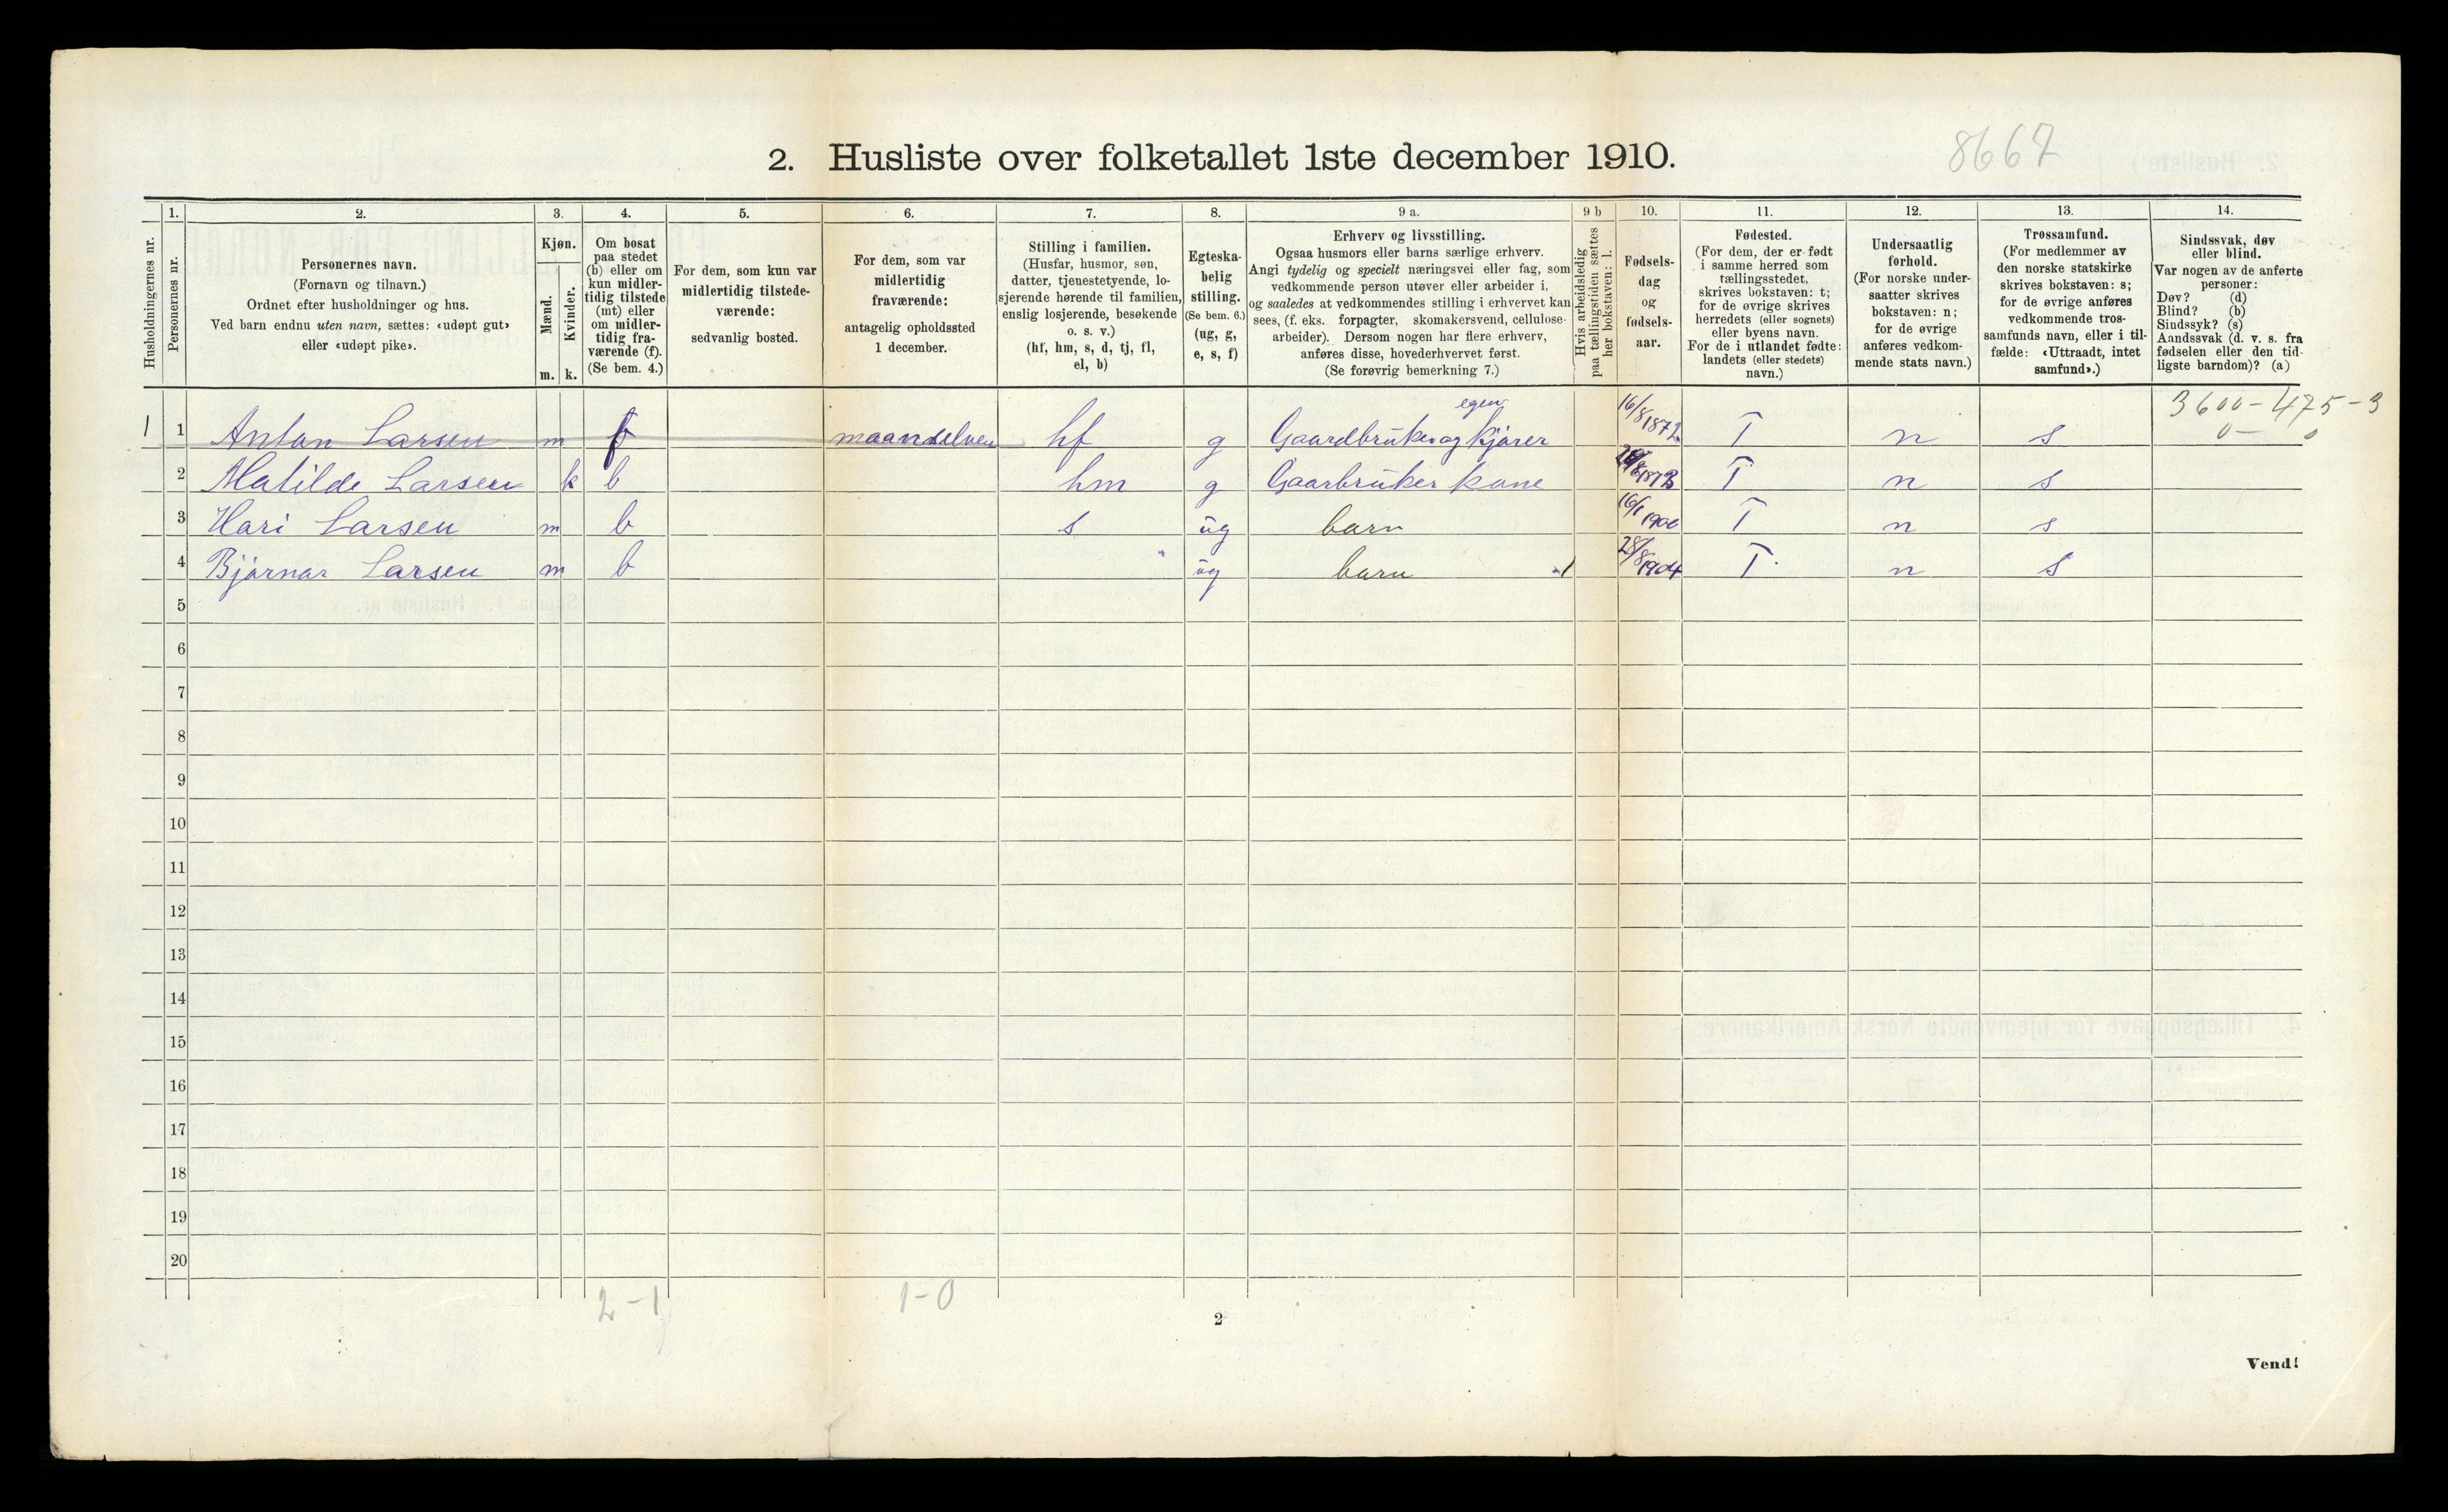 8667
2. Husliste over folketallet 1ste december 1910.
Husholdningernes nr.
1.
Personernes nr.
2.
Personernes navn.
(Fornavn og tilnavn.)
Ordnet efter husholdninger og hus.
Ved barn endnu uten navn, sættes: «udøpt gut»
eller «udøpt pike».
3.
Kjøn.
Mænd.
Kvinder.
m. k.
4.
Om bosat
paa stedet
(b) eller om
kun midler-
tidig tilstede
(mt) eller
om midler-
tidig fra-
værende (f).
(Se bem. 4.)
5.
For dem, som kun var
midlertidig tilstede-
værende:
sedvanlig bosted.
6.
For dem, som var
midlertidig
fraværende:
antagelig opholdssted
1 december.
7.
Stilling i familien.
(Husfar, husmor, søn,
datter, tjenestetyende, lo-
sjerende hørende til familien,
enslig losjerende, besøkende
o. s. v.)
(hf, hm, s, d, tj, fl,
el, b)
8.
Egteska-
belig
stilling.
(Se bem. 6.)
(ug, g,
e, s, f)
9 a.
Erhverv og livsstilling.
Ogsaa husmors eller barns særlige erhverv.
Angi tydelig og specielt næringsvei eller fag, som
vedkommende person utøver eller arbeider i,
og saaledes at vedkommendes stilling i erhvervet kan
sees, (f. eks. forpagter, skomakersvend, cellulose-
arbeider). Dersom nogen har flere erhverv,
anføres disse, hovederhvervet først.
(Se forøvrig bemerkning 7.)
9 b
Hvis arbeidsledig
paa tællingstiden sættes
her bokstaven: l.
10.
Fødsels-
dag
og
fødsels-
aar.
11.
Fødested.
(For dem, der er født
i samme herred som
tællingsstedet,
skrives bokstaven: t;
for de øvrige skrives
herredets (eller sognets)
eller byens navn.
For de i utlandet fødte:
landets (eller stedets)
navn.)
12.
Undersaatlig
forhold.
(For norske under-
saatter skrives
bokstaven: n;
for de øvrige
anføres vedkom-
mende stats navn.)
13.
Trossamfund.
(For medlemmer av
den norske statskirke
skrives bokstaven: s;
for de øvrige anføres
vedkommende tros-
samfunds navn, eller i til-
fælde: «Uttraadt, intet
samfund».)
14.
Sindssvak, døv
eller blind.
Var nogen av de anførte
personer:
Døv? (d)
Blind? (b)
Sindssyk? (s)
Aandssvak (d. v. s. fra
fødselen eller den tid-
ligste barndom)? (a)
3600-475-3
egen
1 1 Anton Larsen m f maandselven hf g Gaardbruker og kjører 16/8 1872 T n s
2 Matilde Larsen k b hm g Gaarbruker kone T n s
3 Hari Larsen m b s ug barn T n s
4 Bjarnar Larsen m b ug barn 28/8 1904 T n s
5
6
7
8
9
10
11
12
13
14
15
16
17
18
19
20
2-1 1-0
2
Vend!